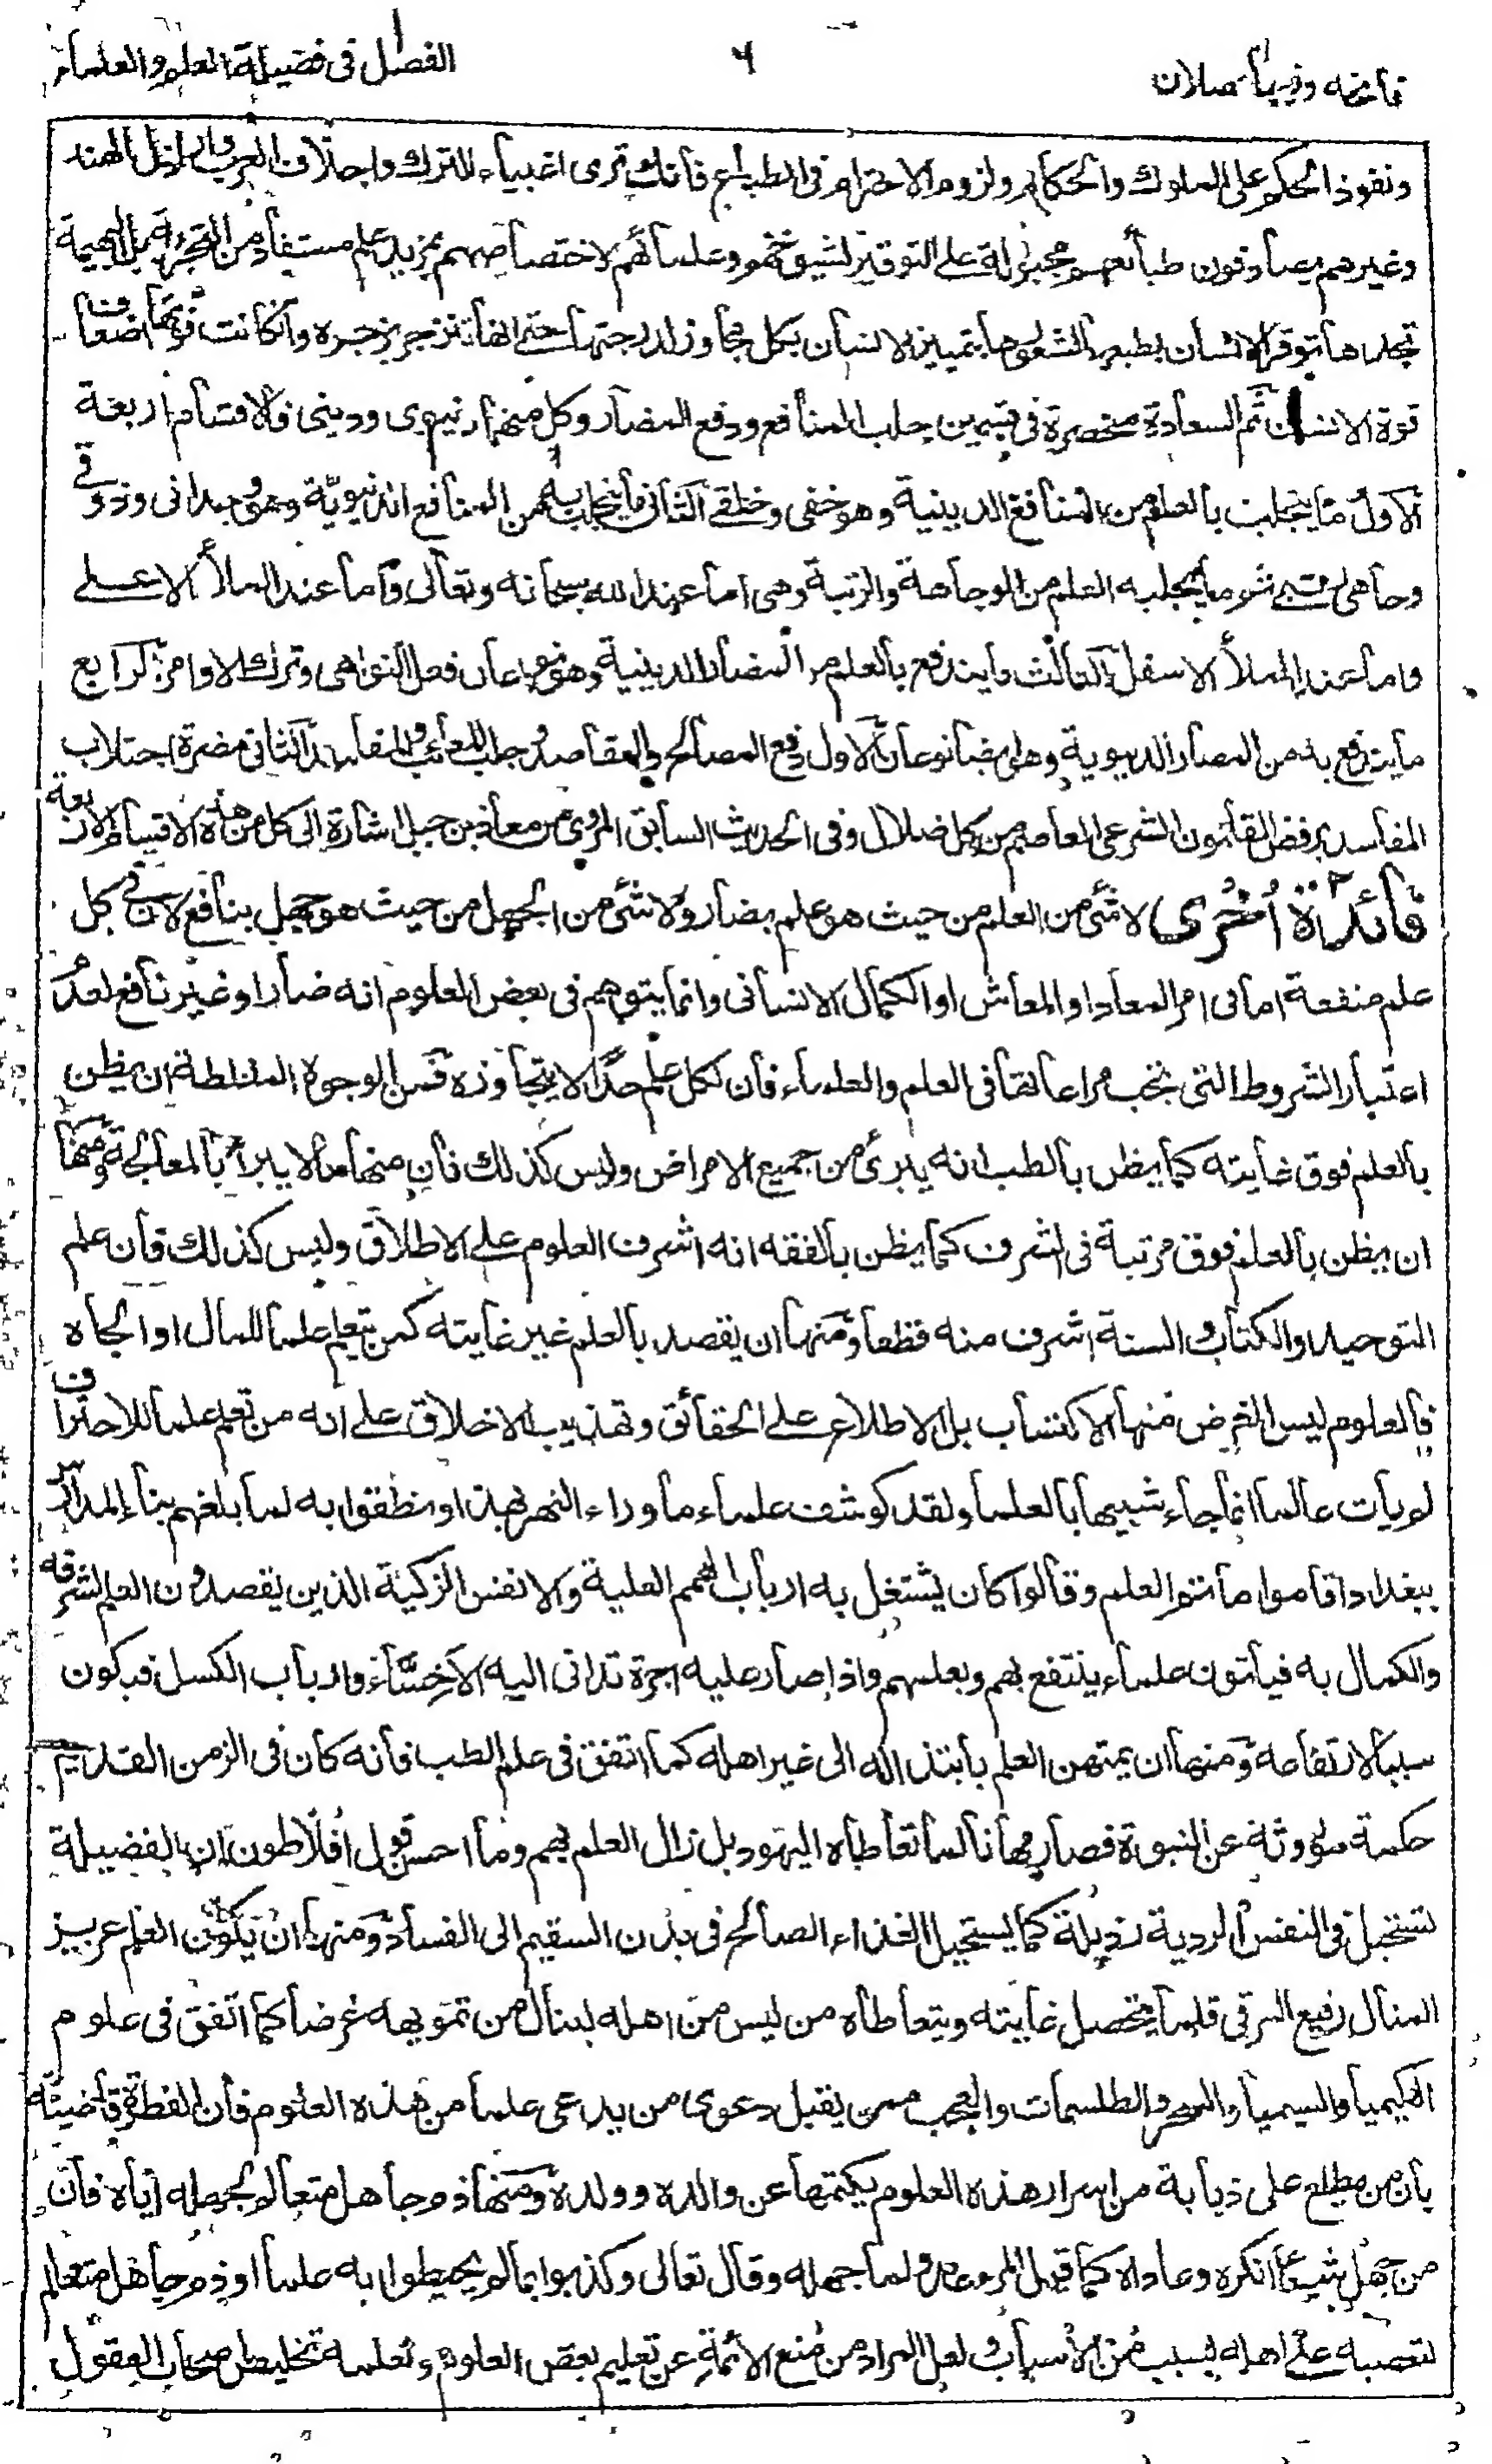 فاتحه وفيها فصلان
٦
الفصل فى فضيلة العلم والعلماء
ونفوذ الحكم على الملوك والحكام ولزوم الاحترام فى الطبائع فانك ترى اغبياء الترك واجلاف العرب واراذل الهند
وغيرهم يصادفون طبائعهم مجبولة على التوقير لشيوخهم وعلمائهم لاختصاصهم بمزيد علم مستفاد من التجربة بل البهيمة
تجدها توقر الانسان بطبعها لشعورها بتمييز الانسان بكمال مجاوز لدرجتها حتى انها تنزجر بزجره وان كانت قوتها اضعاف
قوة الانسان ثم السعادة منحصرة فى قسمين جلب المنافع ودفع المضار وكل منهما دنيوى ودينى فالاقسام اربعة
الاول ما ينجلب بالعلم من المنافع الدينية وهو خفى وخلقى الثانى ما ينجلب به من المنافع الدنيوية وهو وجدانى وذوقى
وجاهى رتبى هو ما يجلبه العلم من الوجاهة والرتبة وهى اما عند الله سبحانه وتعالى واما عند الملأ الاعلى
واما عند الملأ الاسفل الثالث ما يندفع بالعلم من المضار الدينية وهو نوعان فعل النواهى وترك الاوامر الرابع
ما يندفع به من المضار الدنيوية وهو ايضا نوعان الاول رفع المصالح والمقاصد وجلب المعائب والمفاسد الثانى مضرة اجتلاب
المفاسد برفض القانون الشرعى العاصم من كل ضلال وفى الحديث السابق المروى عن معاذ بن جبل اشارة الى كل من هذه الاقسام الاربعة
فائدة اخرى لا شئ من العلم من حيث هو علم بضار ولا شئ من الجهل من حيث هو جهل بنافع لان فى كل
علم منفعة اما فى امر المعاد او المعاش او الكمال الانسانى وانما يتوهم فى بعض العلوم انه ضار او غير نافع لعدم
اعتبار الشروط التى تجب مراعاتها فى العلم والعلماء فان لكل علم حدا لا يتجاوزه فمن الوجوه المغلطة ان يظن
بالعلم فوق غايته كما يظن بالطب انه يبرئ من جميع الامراض وليس كذلك فان منها ما لا يبرأ بالمعالجة ومنها
ان يظن بالعلم فوق مرتبة فى الشرف كما يظن بالفقه انه اشرف العلوم على الاطلاق وليس كذلك فان علم
التوحيد والكتاب والسنة اشرف منه قطعا ومنها ان يقصد بالعلم غير غايته كمن يتعلم علما للمال او الجاه
فالعلوم ليس الغرض منها الاكتساب بل الاطلاع على الحقائق وتهذيب الاخلاق على انه من تعلم علما للاحتراف
لم يأت عالما انما جاء شبيها بالعلماء ولقد كوشف علماء ما وراء النهر بهذا ونطقوا به لما بلغهم بناء المدارس
ببغداد اقاموا ماتم العلم وقالوا كان يشتغل به ارباب الهمم العلية والانفس الزكية الذين يقصدون العلم لشرفه
والكمال به فيأتون علماء ينتفع بهم وبعلمهم واذا صار عليه اجرة تدانى اليه الاخساء وارباب الكسل فيكون
سببا لارتفاعه ومنها ان يمتهن العلم بابتذاله الى غير اهله كما اتفق فى علم الطب فانه كان فى الزمن القديم
حكمة موروثة عن النبوة فصار مهانا لما تعاطاه اليهود بل زال العلم بهم وما احسن قول افلاطون ان الفضيلة
تستحيل فى النفس الردية رذيلة كما يستحيل الغذاء الصالح فى بدن السقيم الى الفساد ومنها ان يكون العلم عزيز
المنال رفيع المرقى قلما يتحصل غايته ويتعاطاه من ليس من اهله لينال من تمويهه غرضا كما اتفق فى علوم
الكيميا والسيميا والسحر والطلسمات والعجب ممن يقبل دعوى من يدعى علما من هذه العلوم فان الفطرة قاضية
بان من يطلع على ذبابة من اسرار هذه العلوم يكتمها عن والده وولده ومنها ذم جاهل متعالم لجهله اياه فان
من جهل شيئا انكره وعاداه كما قيل المرء عدو لما جهله وقال تعالى وكذبوا بما لم يحيطوا به علما او ذم جاهل متعالم
لتعصبه على اهله بسبب من الاسباب ولعل المراد من منع الائمة عن تعليم بعض العلوم وتعلمه تخليص اصحاب العقول